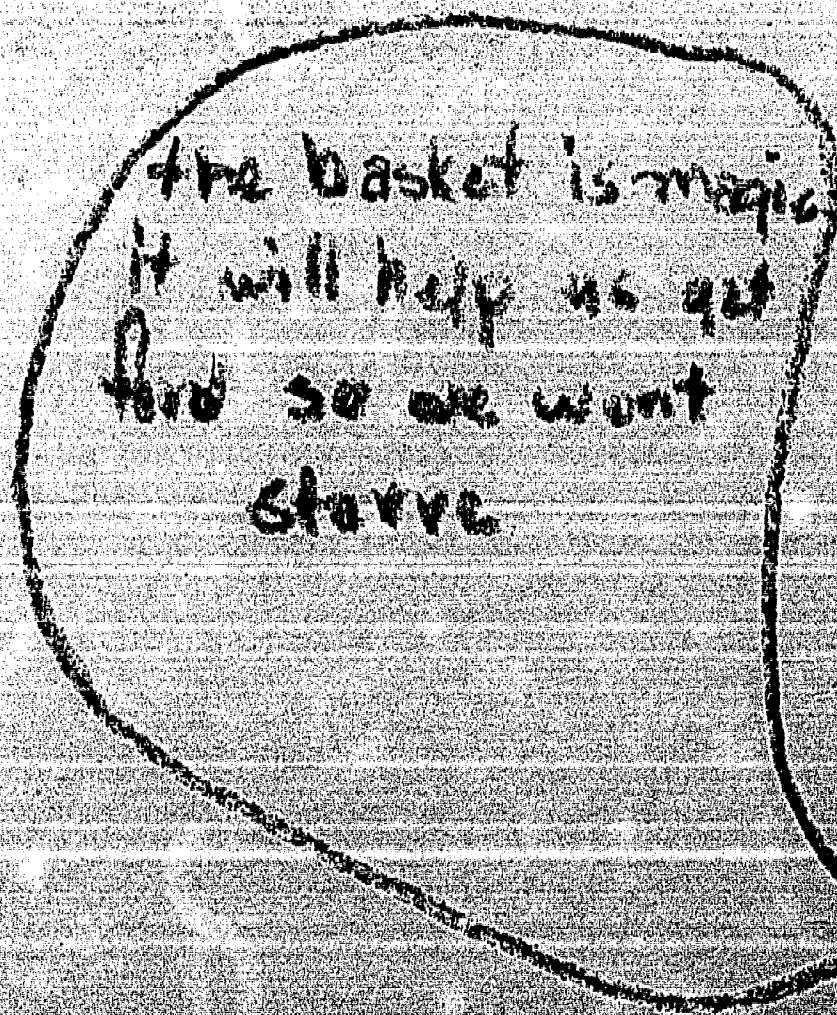 the basket is magic
it will help us get
food so we wont
starve